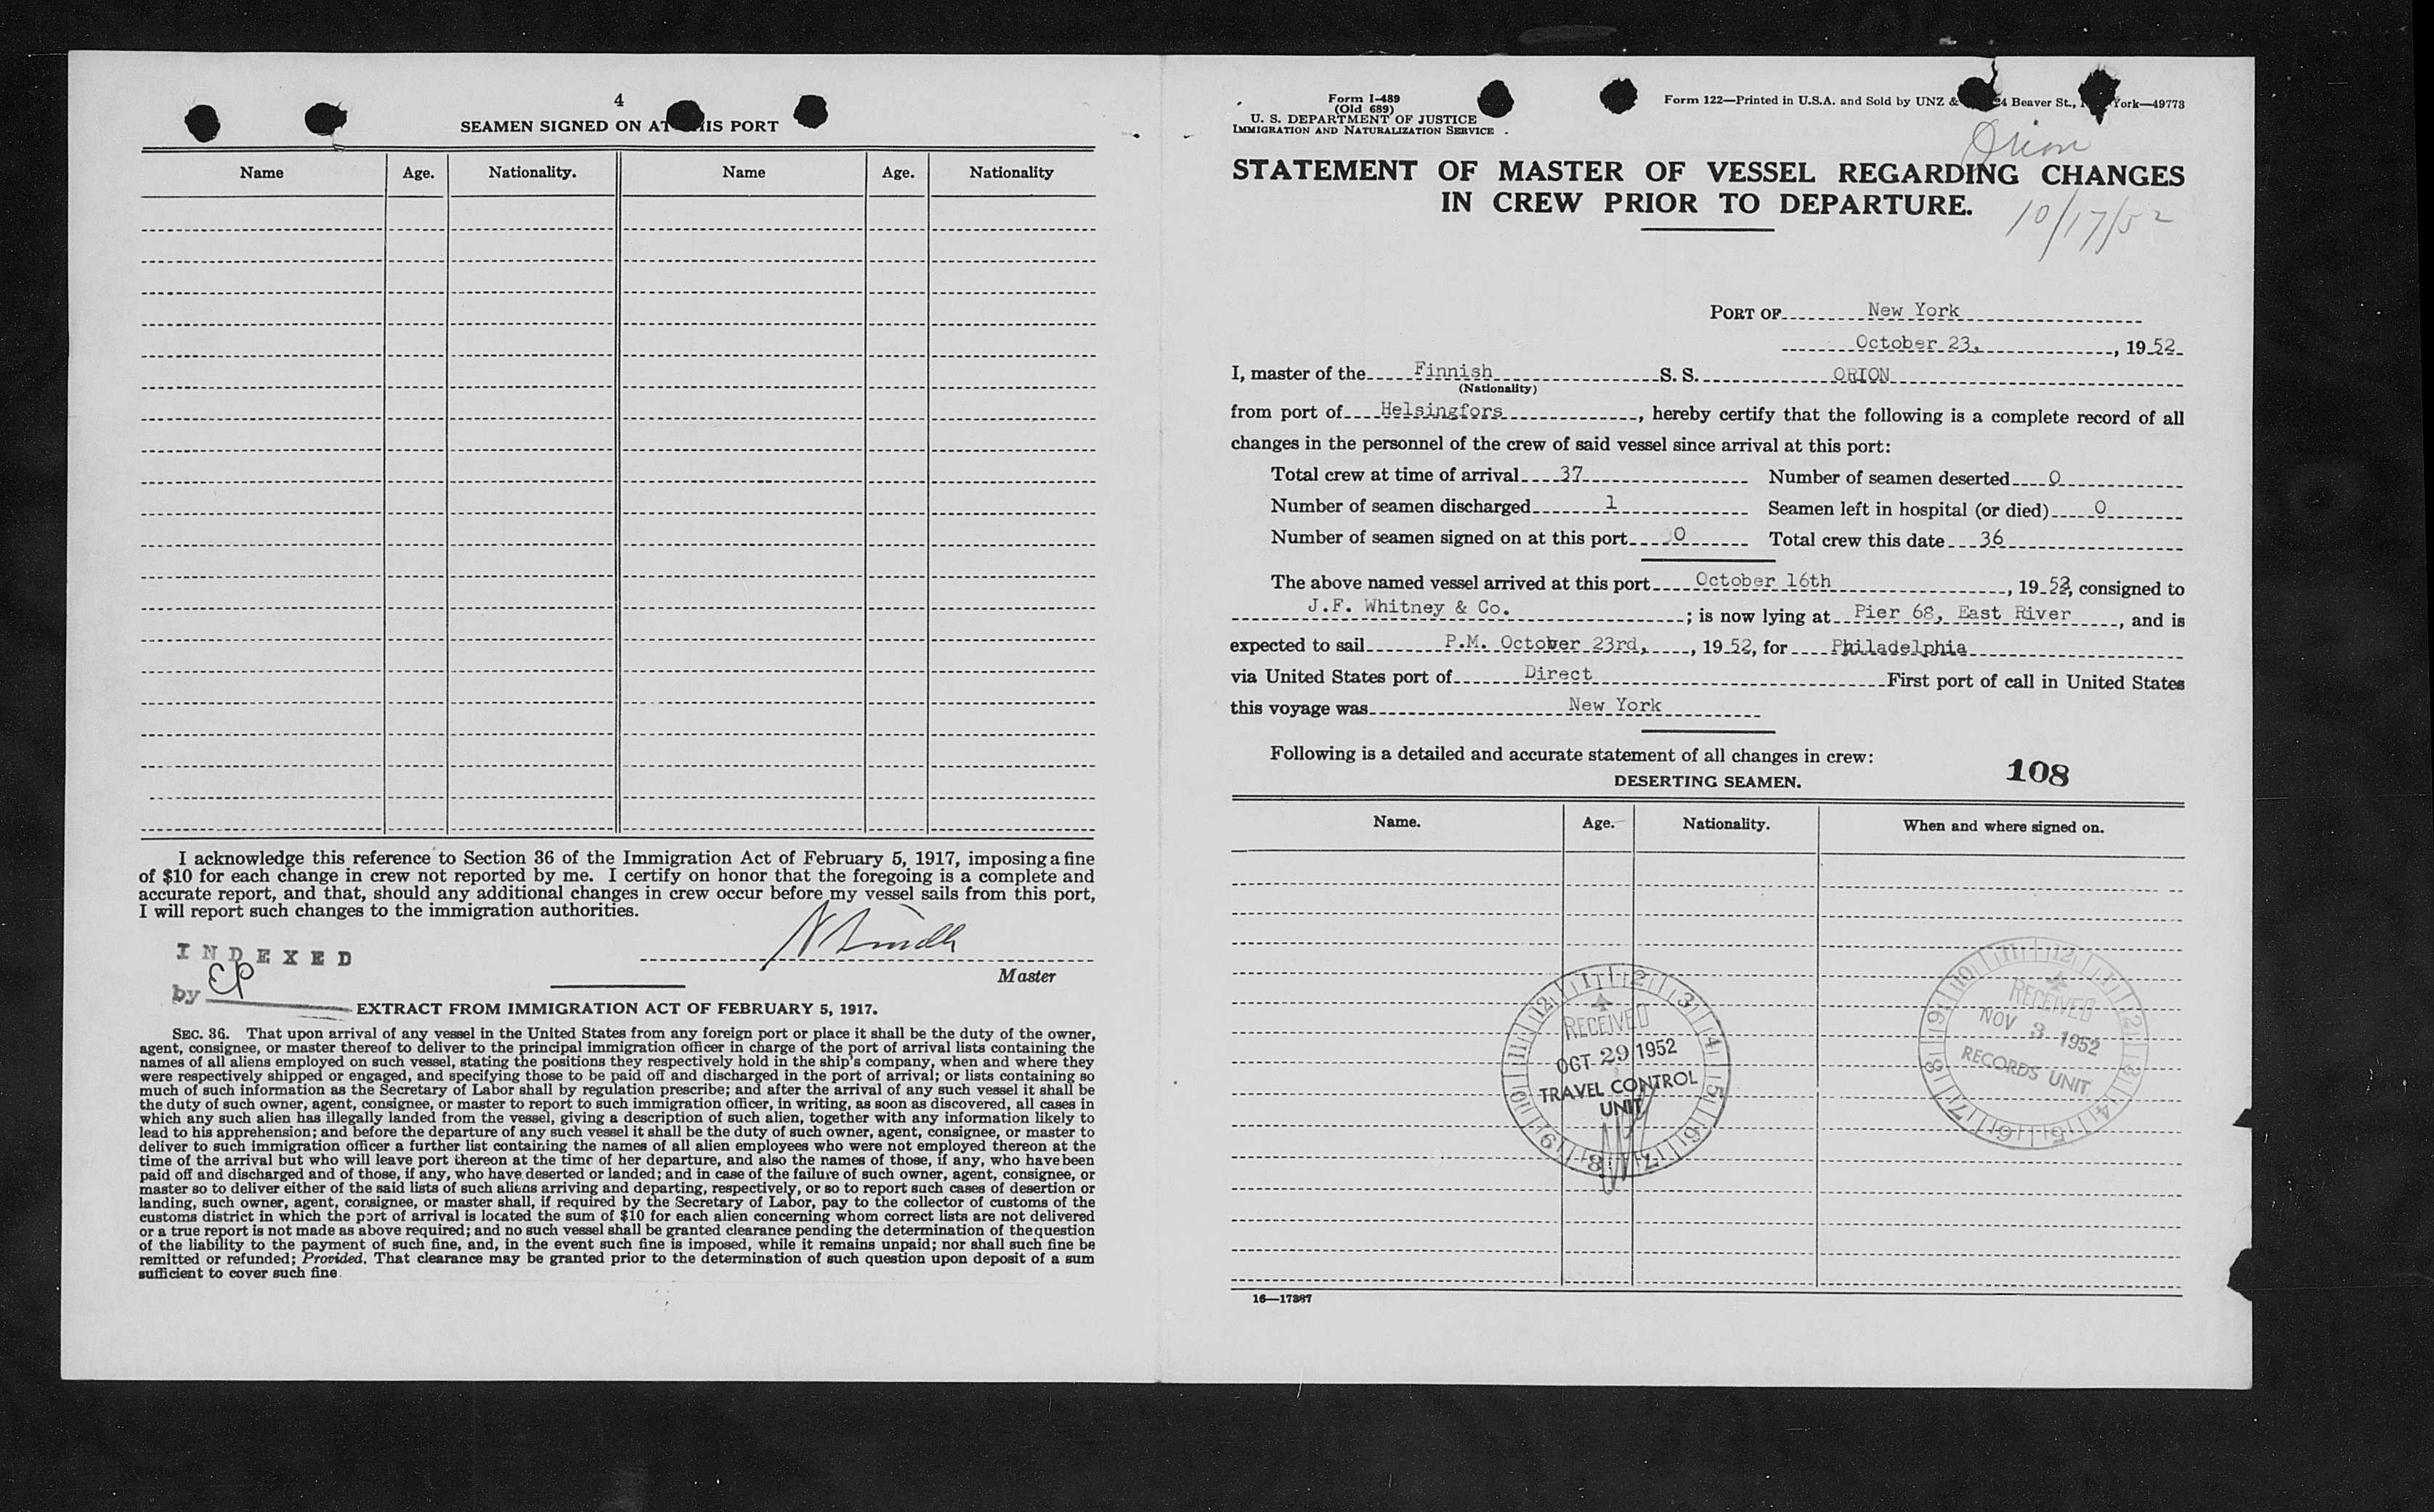 4
SEAMEN SIGNED ON AT THIS PORT
Name Age. Nationality. Name Age. Nationality
I acknowledge this reference to Section 36 of the Immigration Act of February 5, 1917, imposing a fine
of $10 for each change in crew not reported by me. I certify on honor that the foregoing is a complete and
accurate report, and that, should any additional changes in crew occur before my vessel sails from this port,
I will report such changes to the immigration authorities.
INDEXED
by EP
Master
EXTRACT FROM IMMIGRATION ACT OF FEBRUARY 5, 1917.
SEC. 36. That upon arrival of any vessel in the United States from any foreign port or place it shall be the duty of the owner,
agent, consignee, or master thereof to deliver to the principal immigration officer in charge of the port of arrival lists containing the
names of all aliens employed on such vessel, stating the positions they respectively hold in the ship's company, when and where they
were respectively shipped or engaged, and specifying those to be paid off and discharged in the port of arrival; or lists containing so
much of such information as the Secretary of Labor shall by regulation prescribe; and after the arrival of any such vessel it shall be
the duty of such owner, agent, consignee, or master to report to such immigration officer, in writing, as soon as discovered, all cases in
which any such alien has illegally landed from the vessel, giving a description of such alien, together with any information likely to
lead to his apprehension; and before the departure of any such vessel it shall be the duty of such owner, agent, consignee, or master to
deliver to such immigration officer a further list containing the names of all alien employees who were not employed thereon at the
time of the arrival but who will leave port thereon at the time of her departure, and also the names of those, if any, who have been
paid off and discharged and of those, if any, who have deserted or landed; and in case of the failure of such owner, agent, consignee, or
master so to deliver either of the said lists of such aliens arriving and departing, respectively, or so to report such cases of desertion or
landing, such owner, agent, consignee, or master shall, if required by the Secretary of Labor, pay to the collector of customs of the
customs district in which the port of arrival is located the sum of $10 for each alien concerning whom correct lists are not delivered
or a true report is not made as above required; and no such vessel shall be granted clearance pending the determination of the question
of the liability to the payment of such fine, and, in the event such fine is imposed, while it remains unpaid; nor shall such fine be
remitted or refunded; Provided, That clearance may be granted prior to the determination of such question upon deposit of a sum
sufficient to cover such fine
Form I-489
(Old 689)
U. S. DEPARTMENT OF JUSTICE
IMMIGRATION AND NATURALIZATION SERVICE
Form 122—Printed in U.S.A. and Sold by UNZ & 24 Beaver St., York—49773
Orion
STATEMENT OF MASTER OF VESSEL REGARDING CHANGES
IN CREW PRIOR TO DEPARTURE.
10/17/52
PORT OF New York
October 23, , 1952
I, master of the Finnish S. S. ORION
(Nationality)
from port of Helsingfors, hereby certify that the following is a complete record of all
changes in the personnel of the crew of said vessel since arrival at this port:
Total crew at time of arrival 37 Number of seamen deserted 0
Number of seamen discharged 1 Seamen left in hospital (or died) 0
Number of seamen signed on at this port 0 Total crew this date 36
The above named vessel arrived at this port October 16th, 1952, consigned to
J.F. Whitney & Co. ; is now lying at Pier 68, East River, and is
expected to sail P.M. October 23rd, , 1952, for Philadelphia
via United States port of Direct First port of call in United States
this voyage was New York
Following is a detailed and accurate statement of all changes in crew:
108
DESERTING SEAMEN.
Name. Age. Nationality. When and where signed on.
1 2 3 4 5 6 7 8 9 10 11 12
RECEIVED
OCT 29 1952
TRAVEL CONTROL
UNIT
1 2 3 4 5 6 7 8 9 10 11 12
RECEIVED
NOV 3 1952
RECORDS UNIT
16—17387